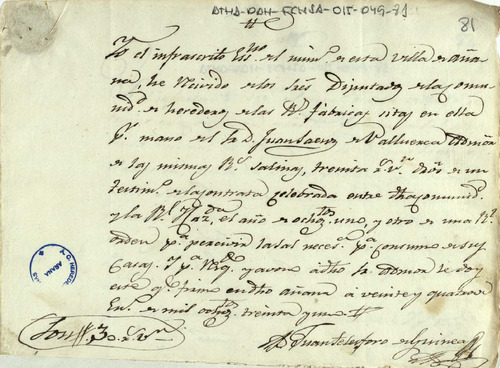 ATHA-DAH-FCHSA-015-049-81
81
Yo el infrascrito Esno. del num. de esta villa de Aña
na, he recivido de los Sres Diputados de la comu
nid. de herederos de las Rs. fabricas sitas en ella
pr. mano del Sr. D. Juan Saenz de Valluerca Admor.
de las mismas Rs. Salinas, treinta rs. vn. dros. de un
testim. de la contrata celebrada entre dha comunid.
y la Rl. Hazda. el año de ochos. uno, y otro de una Rl.
orden pa. percivir la sal neces. pa. consumo de sus
casas, y pa. y avono a dho Sr. Admor. le doy
este qe. firmo en dho Añana á veinte y quatro de
En. de mil ochos. treinta y uno
Son 30 rs. vn.
Juan Telesforo de Guinea
A. D. HEREDEROS
AÑANA